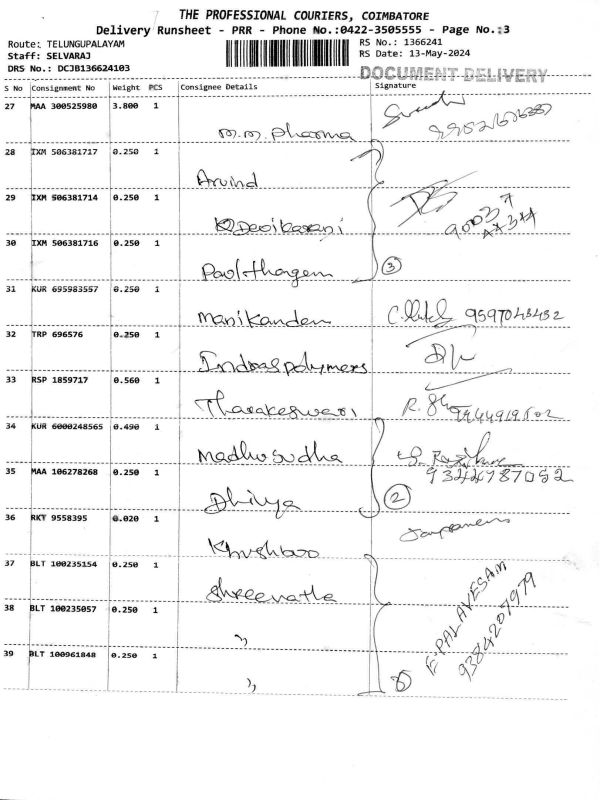 THE PROFESSIONAL COURIERS, COIMBATORE
Delivery Runsheet - PRR - Phone No.:0422-3505555 - Page No.:3
Route: TELUNGUPALAYAM RS No.: 1366241
Staff: SELVARAJ RS Date: 13-May-2024
DRS No.: DCJB136624103 DOCUMENT DELIVERY
S No Consignment No Weight PCS Consignee Details Signature
27 MAA 300525980 3.800 1
m.m. pharma
28 IXM 506381717 0.250 1
Arvind
29 IXM 506381714 0.250 1
Devikarani
30 IXM 506381716 0.250 1
3
31 KUR 695983557 0.250 1
Manikandem 9597043432
32 TRP 696576 0.250 1
Indras polymers
33 RSP 1859717 0.560 1
Tharakeswari
34 KUR 6000248565 0.490 1
Madhu sudha
35 MAA 106278268 0.250 1 9344787052
Dhivya 2
36 RKT 9558395 0.020 1
Khushboo
37 BLT 100235154 0.250 1
Shreevatla
38 BLT 100235057 0.250 1 E. PALAVESAM
" 9384207979
39 BLT 100961848 0.250 1
"